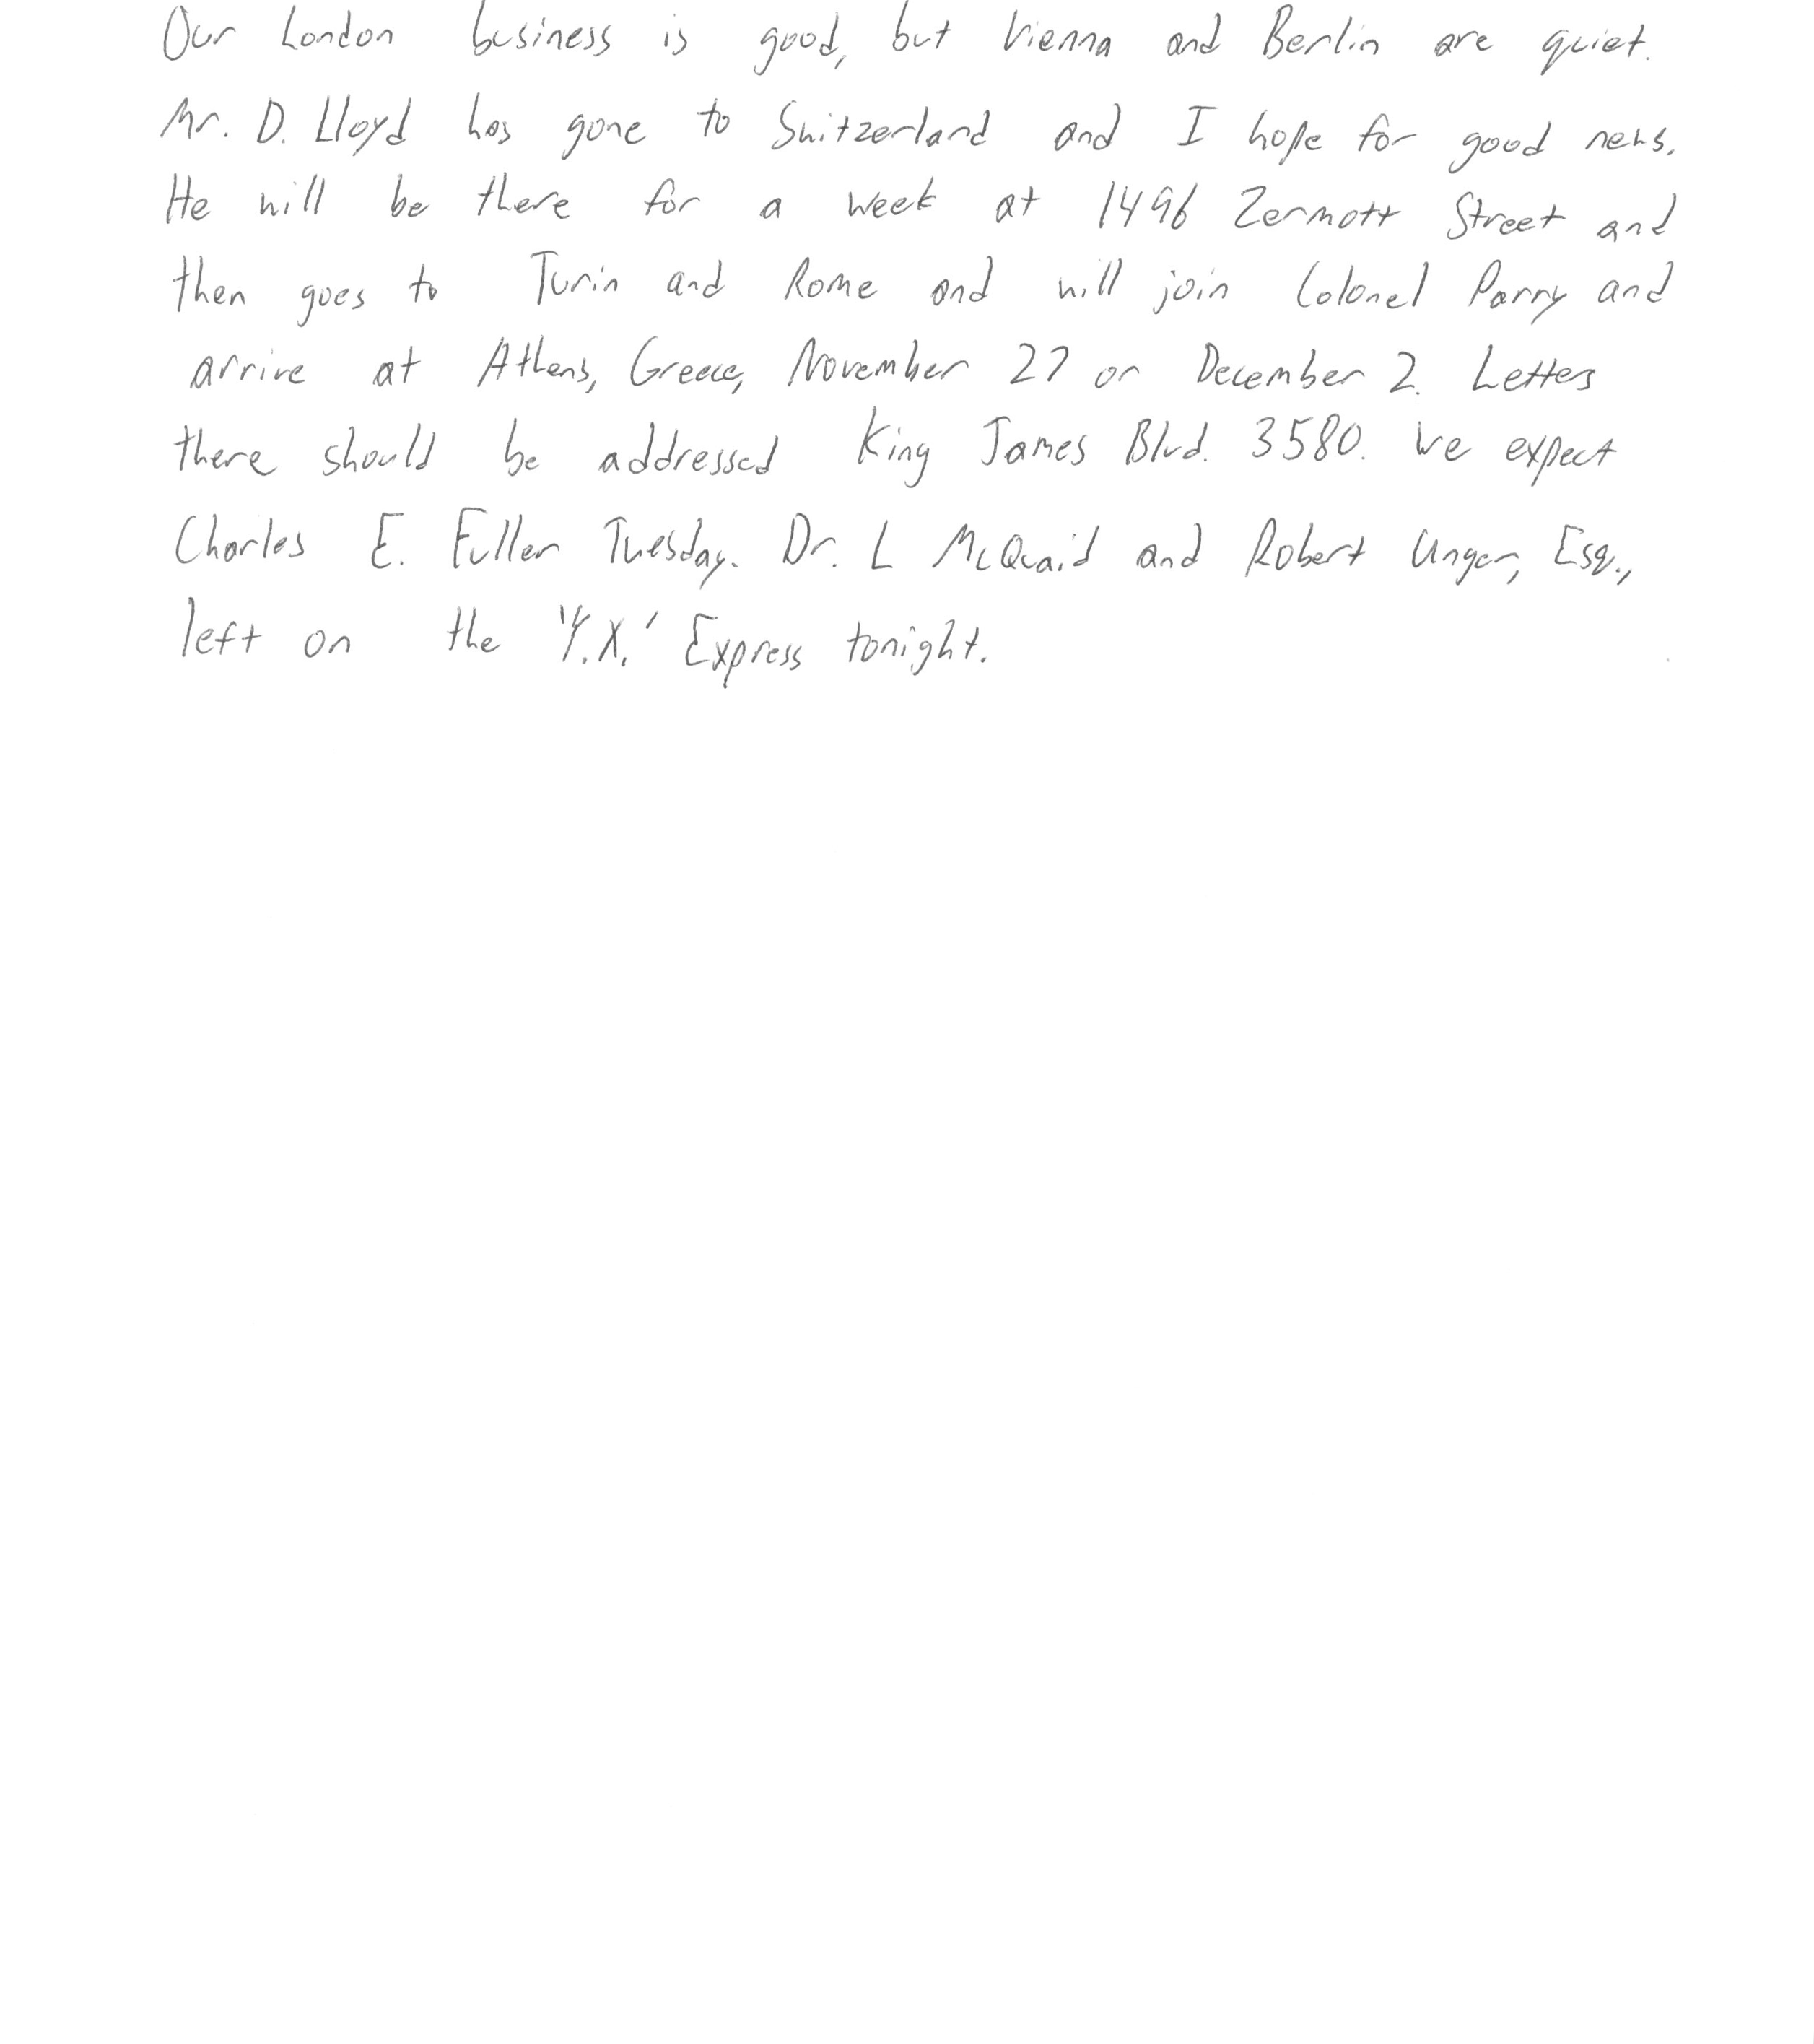 Our London business is good, but Vienna and Berlin are quiet.
Mr. D. Lloyd has gone to Switzerland and I hope for good news.
He will be there for a week at 1496 Zermott Street and
then goes to Turin and Rome and will join Colonel Parry and
arrive at Athens, Greece, November 27 or December 2. Letters
there should be addressed King James Blvd. 3580. We expect
Charles E. Fuller Tuesday. Dr. L McQuaid and Robert Unger, Esq.,
left on the 'Y.X.' Express tonight.